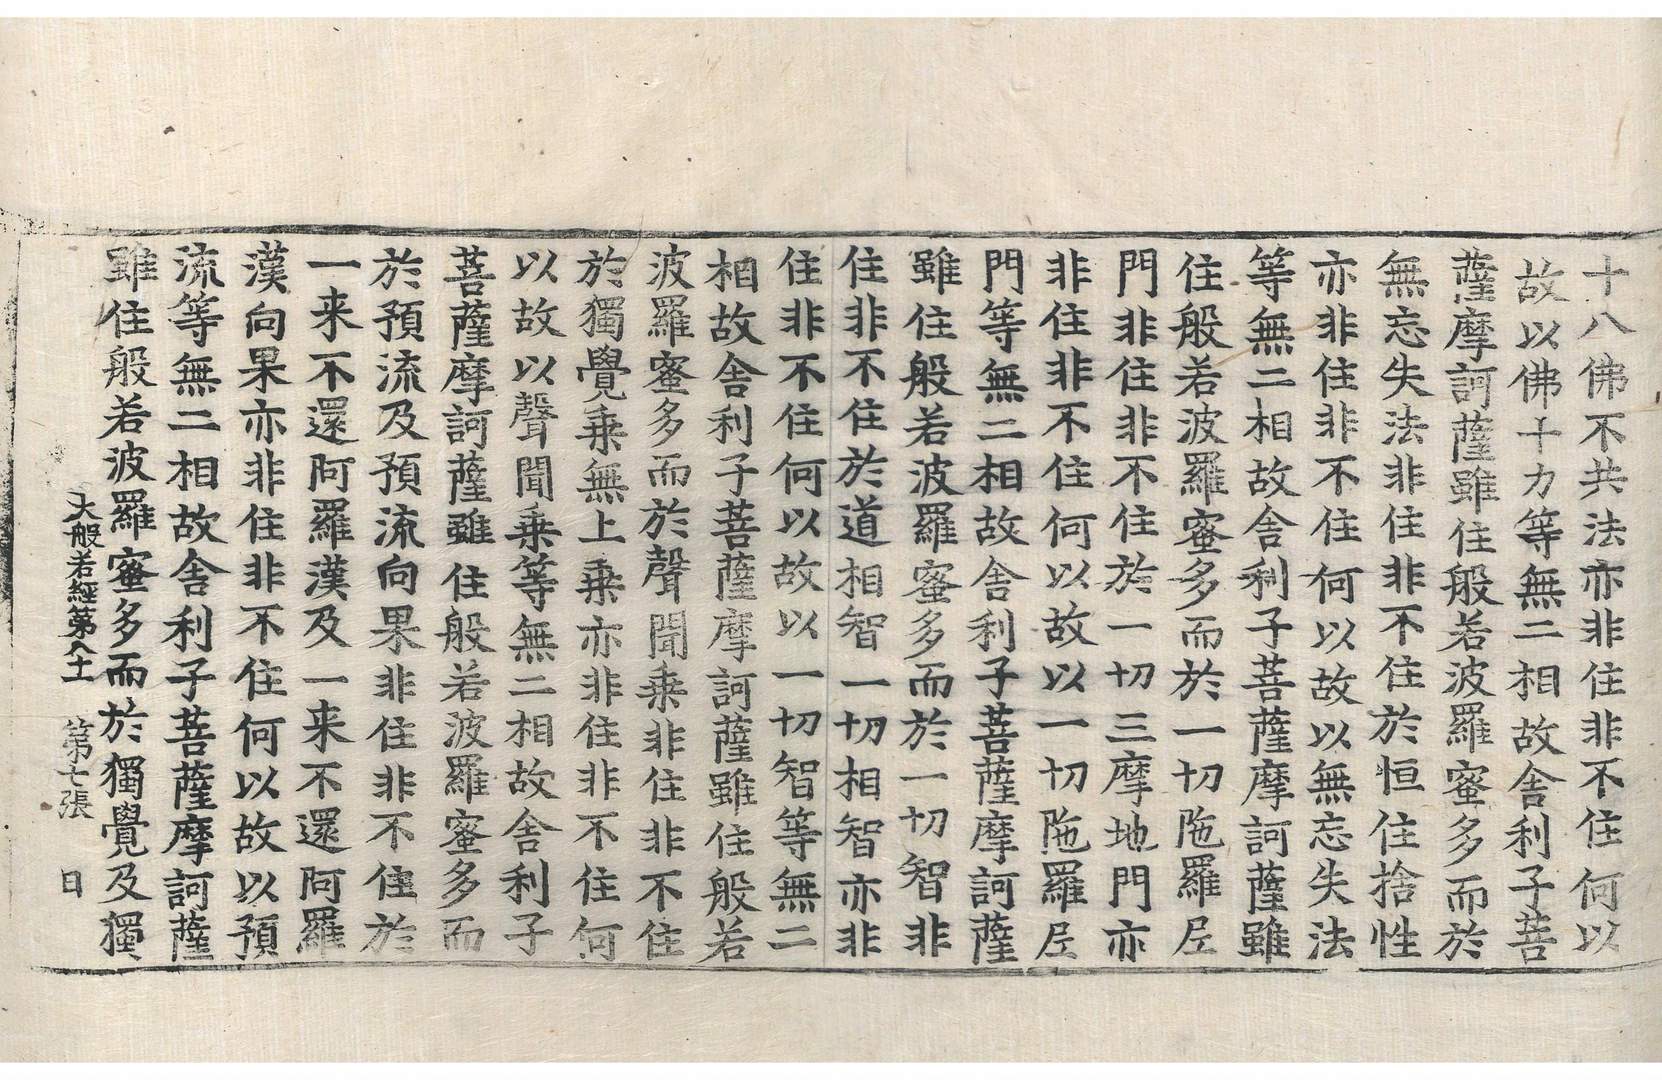 十八佛不共法亦非住非不住何以
故以佛十力等無二相故舍利子菩
薩摩訶薩雖住般若波羅蜜多而於
無忘失法非住非不住於恒住捨性
亦非住非不住何以故以無忘失法
等無二相故舍利子菩薩摩訶薩雖
住般若波羅蜜多而於一切陁羅尼
門非住非不住於一切三摩地門亦
非住非不住何以故以一切陁羅尼
門等無二相故舍利子菩薩摩訶薩
雖住般若波羅蜜多而於一切智非
住非不住於道相智一切相智亦非
住非不住何以故以一切智等無二
相故舍利子菩薩摩訶薩雖住般若
波羅蜜多而於聲聞乗非住非不住
於獨覺乗無上乗亦非住非不住何
以故以聲聞乗等無二相故舍利子
菩薩摩訶薩雖住般若波羅蜜多而
於預流及預流向果非住非不住於
一来不還阿羅漢及一来不還阿羅
漢向果亦非住非不住何以故以預
流等無二相故舍利子菩薩摩訶薩
雖住般若波羅蜜多而於獨覺及獨
大般若經第八十一 第七張 日